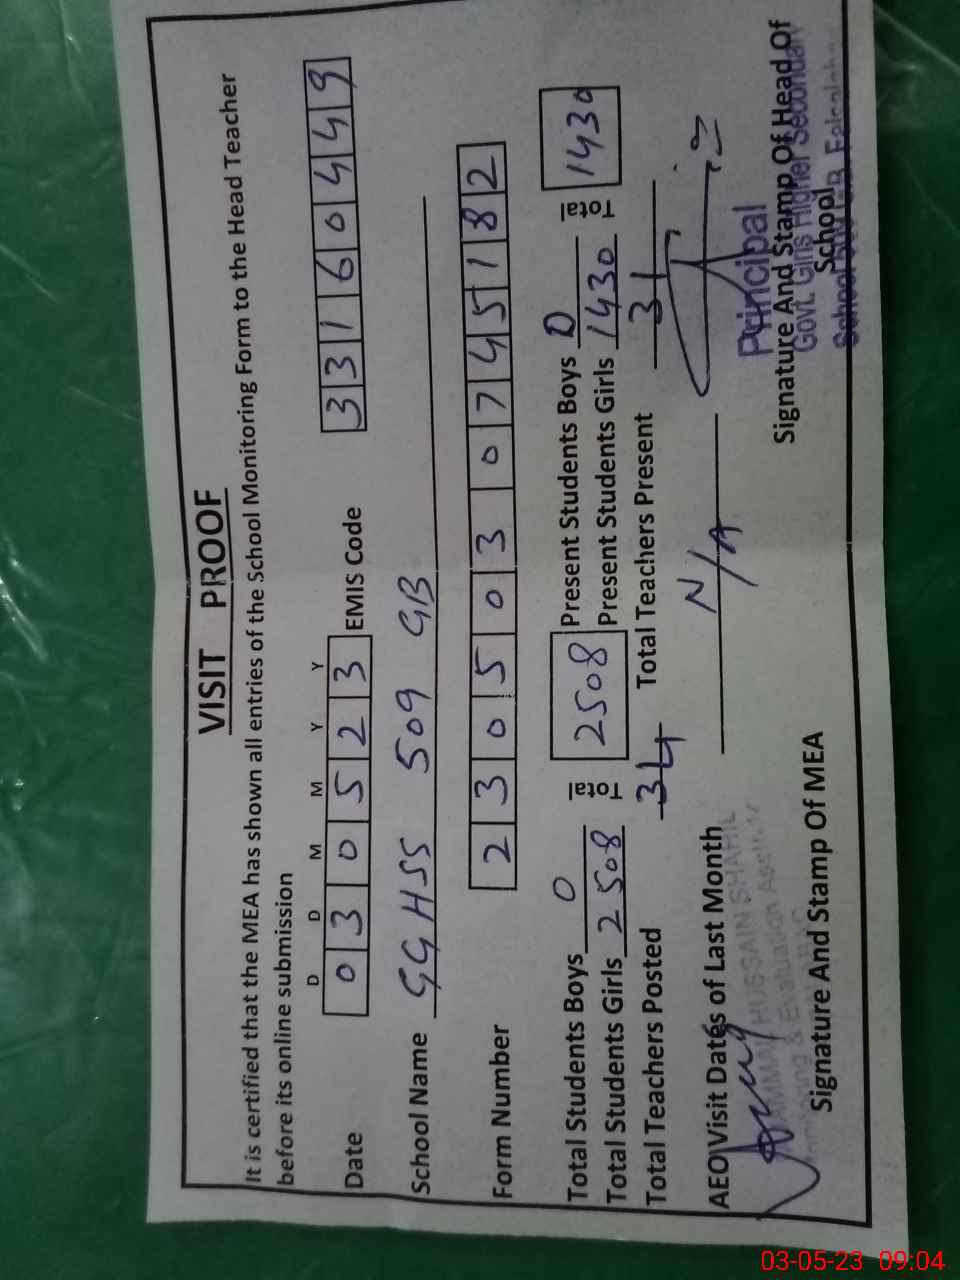 VISIT PROOF
It is certified that the MEA has shown all entries of the School Monitoring Form to the Head Teacher
before its online submission
D D M M Y Y
Date 0 3 0 5 2 3 EMIS Code 3 3 1 6 0 4 4 9
School Name GGHSS 509 GB
Form Number 2 3 0 5 0 3 0 7 4 5 1 8 2
Total Students Boys 0 Total 2508 Present Students Boys 0 Total 1430
Total Students Girls 2508 Present Students Girls 1430
Total Teachers Posted 34 Total Teachers Present 31
AEO Visit Dates of Last Month N/A
HUSSAIN SHAHIL
& Evaluation
Principal
Govt. Girls Higher Secondary
School
Signature And Stamp Of MEA
Signature And Stamp Of Head Of
School
03-05-23 09:04